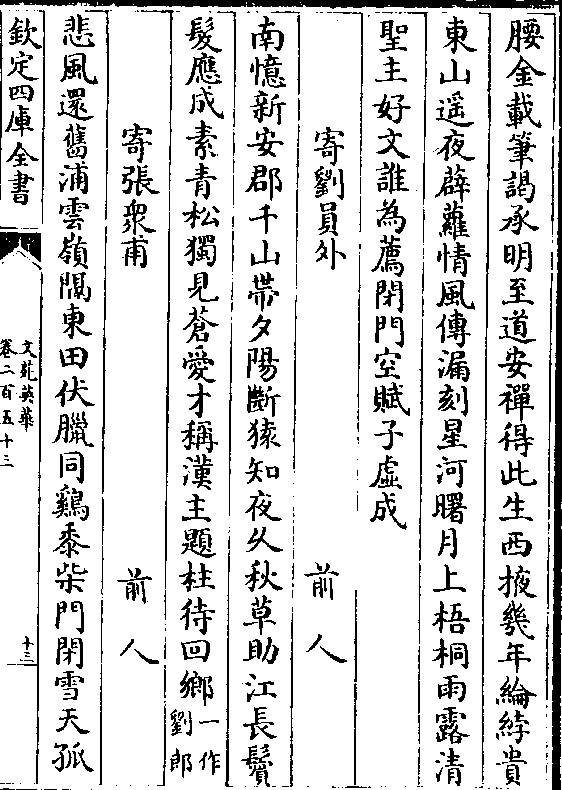 腰金載筆謁承明至道安禪得此生西掖幾年綸綍貴
東山遥夜薜蘿情風傳漏刻星河曙月上梧桐雨露清
聖主好文誰為薦閉門空賦子虛成
寄劉員外 前人
南憶新安郡千山帶夕陽斷猿知夜久秋草助江長鬢
髮應成素青松獨見蒼愛才稱漢主題柱待回鄉一作劉郎
寄張衆甫 前人
悲風還舊浦雲嶺隔東田伏臘同鷄黍柴門閉雪天孤
欽定四庫全書
文苑英華
卷二百五十三
十三